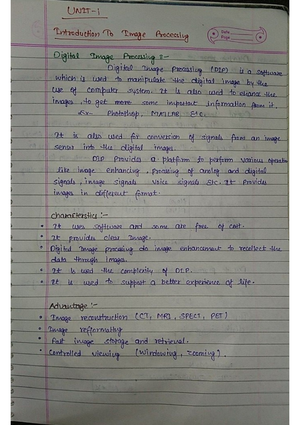 UNIT-1
Introduction To Image Processing
Date
Page
Digital Image Processing :-
Digital Image Processing (DIP) is a software
which is used to manipulate the digital image by the
use of computer system. It is also used to enhance the
images, to get more some important information from it.
Ex- Photoshop, MATLAB, Etc.
It is also used for conversion of signals from an image
sensor into the digital images.
DIP Provides a platform to perform various operation
like image enhancing, processing of analog and digital
signals, image signals voice signals Etc. It Provides
images in different format.
Characteristics :-
• It uses software and some are free of cost.
• It provides clear Image.
• Digital Image processing do image enhancement to recollect the
data through images.
• It is used the complexity of DIP.
• It is used to support a better experience of life.
Advantage :-
• Image reconstruction (CT, MRI, SPECT, PET)
• Image reformatting
• Fast image storage and retrieval.
• Controlled viewing (Windowing, Zooming).